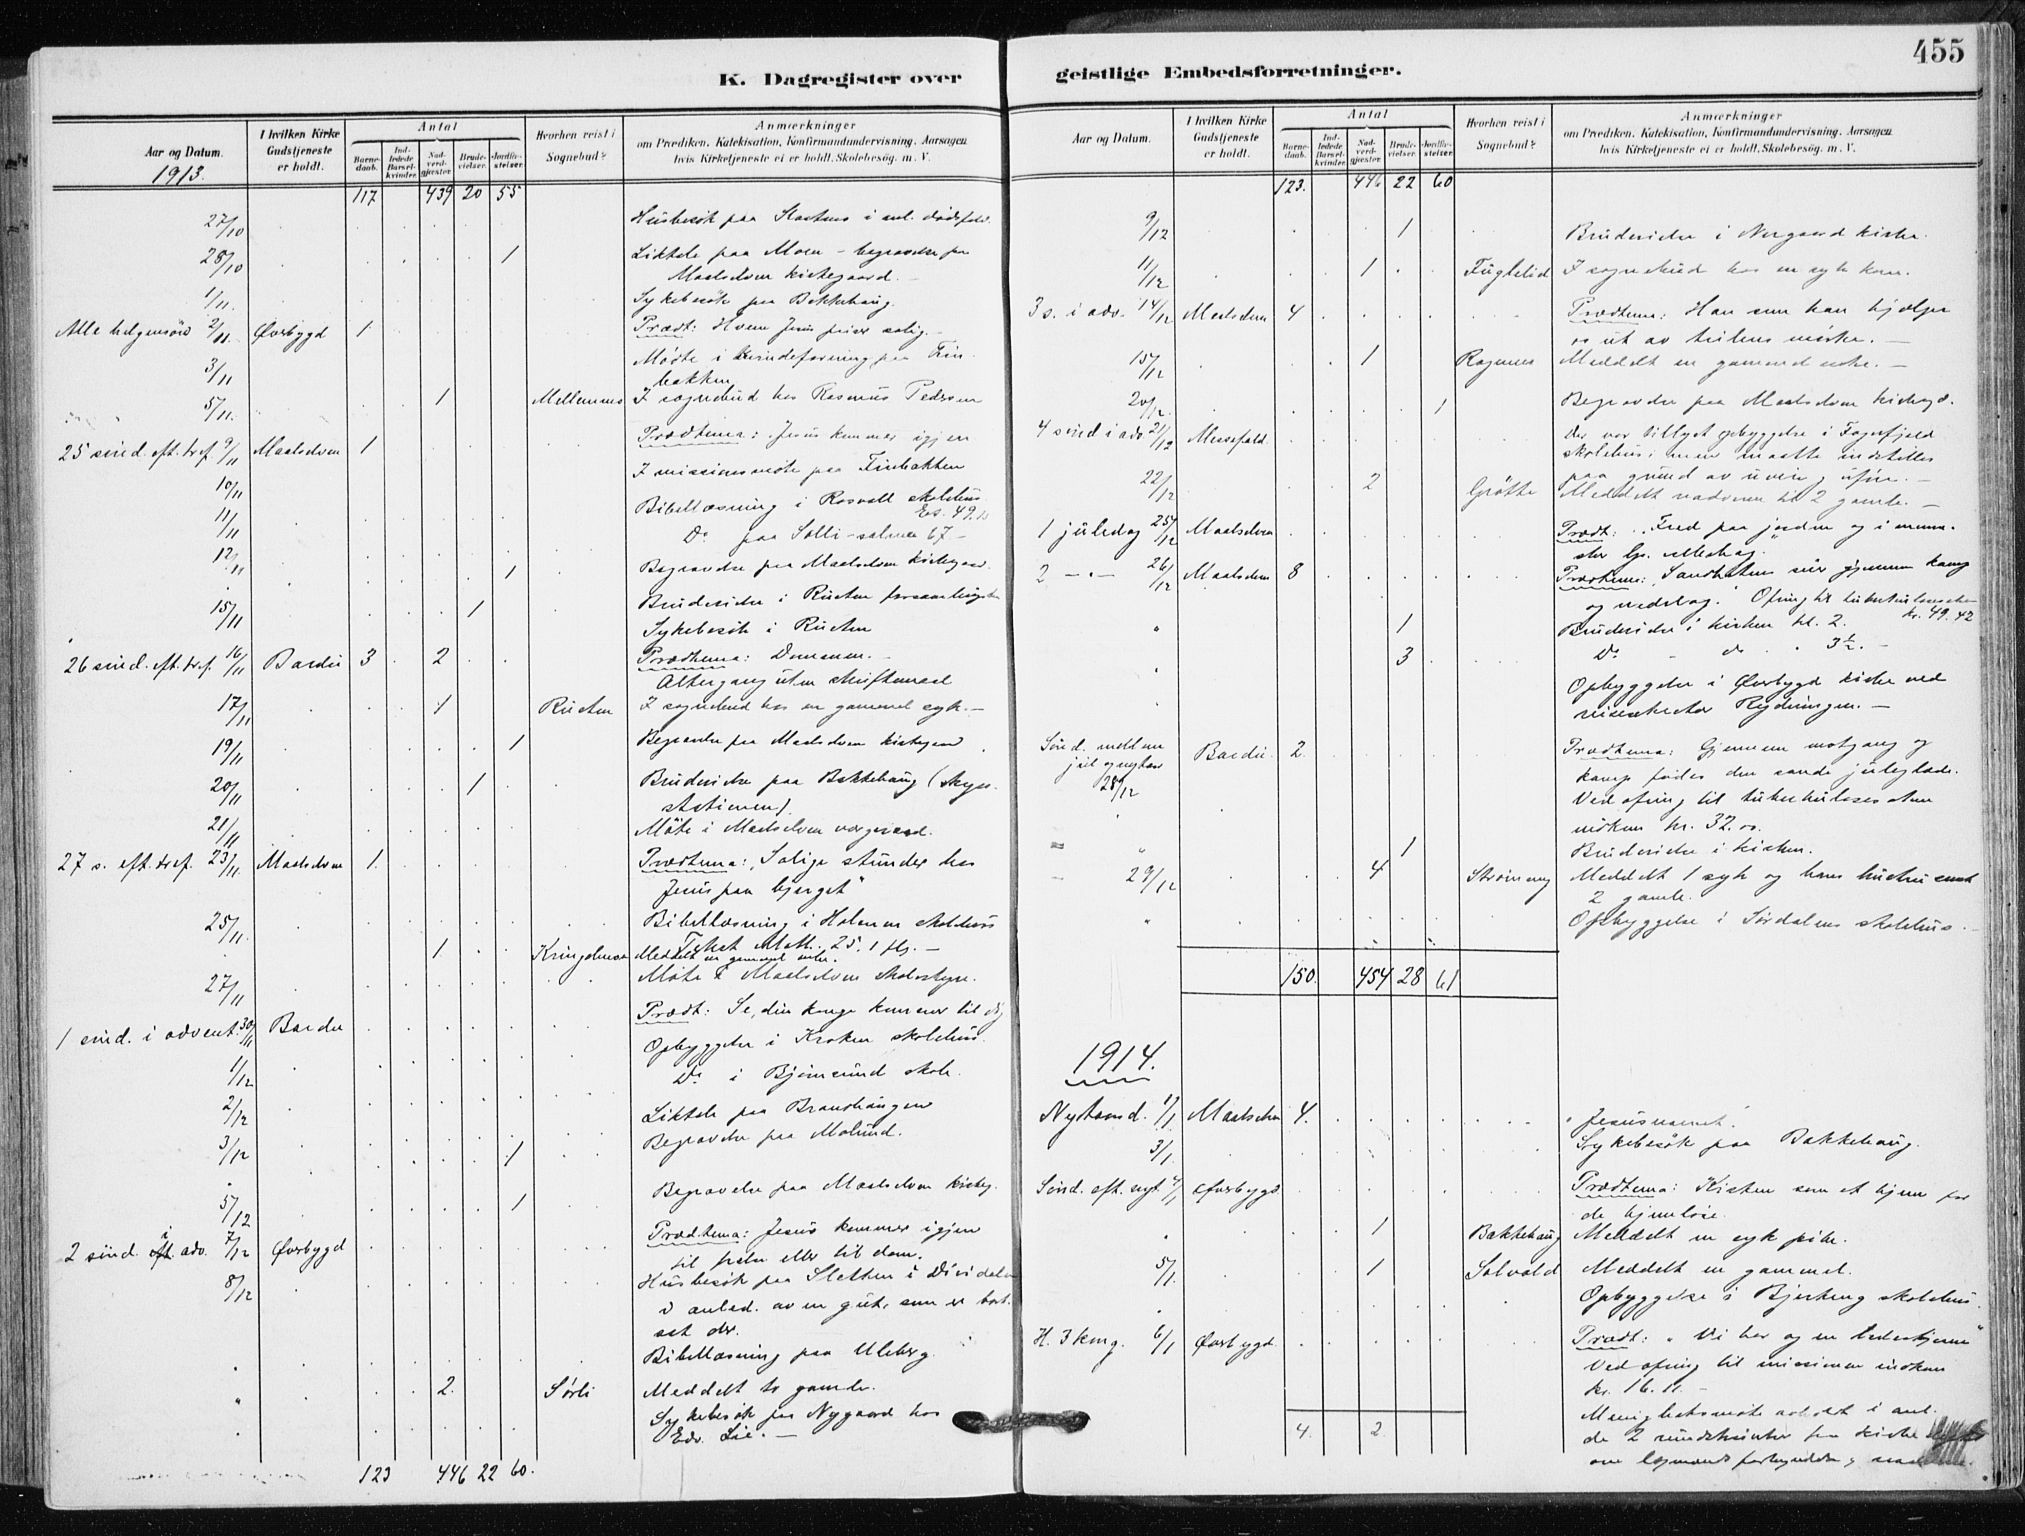 455
K. Dagregister over geistlige Embedsforretninger.
Aar og Datum. I hvilken Kirke Gudstjeneste er holdt. Antal Barnedaab. Indledede Barselkvinder. Nadverdgjæster. Brudevielser. Jordfæstelser. Hvorhen reist i Sognebud? Anmærkninger om Prædiken, Katekisation, Konfirmandundervisning, Aarsagen hvis Kirketjeneste ei er holdt, Skolebesøg. m. V.
1913.
117 439 20 55
27/10 Husbesøk paa i anl. dødsfald.
28/10 1 Liktale paa Moen – begravelse paa
Maalselven kirkegaard. –
1/11. Sykebesøk paa Bakkehaug.
Alle helgensønd 2/11. Øverbygd 1. Prædt: Hvem Jesus priser salig. –
3/11 Møte i kvindeforening paa Fin
bakken
5/11. 1 Mellemnes I sognebud hos Rasmus Pedersen
25 sønd. eft. tref. 9/11 Maalselven 1 Prædtema: Jesus kommer igjen
I missionsmøte paa Finbakken
10/11 Bibellæsning i Rosvoll skolehus
Es. 49.
11/11 Do paa Solli – salme 67 –
12/11 1 Begravelse paa Maalselven kirkegaard
15/11 1 Brudevielse i Rusten forsamlingshus
Sykebesøk i Rusten
26 sønd. eft. tref. 16/11 Bardu 3 2 Prædtema: Dommen. –
Altergang uten skriftemaal
17/11 1 Rusten I sognebud hos en gammel syk. –
19/11 1 Begravelse paa Maalselven kirkegaard
20/11 1 Brudevielse paa Bakkehaug (Skyss-
stationen)
21/11 Møte i Maalselven vergeraad.
27 s. eft. tref. 23/11. Maalselven 1. Prædtema: "Salige stunder hos
Jesus paa bjerget"
25/11. Bibellæsning i Holmen skolehus
Tekst Matt. 25. 1 flg. –
1 Meddelt en gammel enke.
27/11 Møte i Maalselven skolestyre.
1 sønd. i advent 30/11 Bardu Prædt: Se, din konge kommer til dig
Opbyggelse i Kroken skolehus.
1/12 Do i Bjørnsund skole.
2/12 Liktale paa Brandhaugen
3/12 1 Begravelse paa Molund.
5/12 1 Begravelse paa Maalselven kirkeg.
2 sønd. i adv. 7/12 Øverbygd Prædtema: Jesus kommer igjen
til frelse eller til dom.
8/12 Husbesøk paa Sletten i Dividalen
i anled. av en gut, som er bort
sat der.
Bibellæsning paa Uleberg.
" 2. Sørli Meddelt to gamle.
Sykebesøk paa Nygaard hos
Edv. Lie. –
123 446 22 60.
Aar og Datum. I hvilken Kirke Gudstjeneste er holdt. Antal Barnedaab. Indledede Barselkvinder. Nadverdgjæster. Brudevielser. Jordfæstelser. Hvorhen reist i Sognebud? Anmærkninger om Prædiken, Katekisation, Konfirmandundervisning, Aarsagen hvis Kirketjeneste ei er holdt, Skolebesøg. m. V.
123. 446 22 60
9/12 1 Brudevielse i Norgaard kirke.
11/12 1 Fuglelid I sognebud hos en syk kone.
3 s. i adv. 14/12 Maalselven 4 Prædtema: Han som kan hjælpe
os ut av tvilens mörke. –
15/12 1 Rognmo Meddelt en gammel enke. –
20/12. 1 Begravelse paa Maalselven kirkegd.
4 sønd i adv 21/12 Messefald. Der var tillyst opbyggelse i Fagerfjeld
skolehus men maatte indstilles
paa grund av uveir og uføre. –
22/12 2 Grøtte Meddelt nadveren til 2 gamle. –
1 juledag 25/12 Maalselven Prædt: "Fred paa jorden og i menne-
sker Gs. velbehag."
2 – " – 26/12 Maalselven 8 Prædtema: "Sandhetens seir gjennem kamp
og nederlag." Ofring til tuberkulosesaken
kr. 49.42
" 1 Brudevielse i kirken kl. 2.
" 3 Do – do " 3½. –
Opbyggelse i Øverbygd kirke ved
reisesekretær Rydningen. –
Sønd. mellem
jul og nytaar
28/12 Bardu. 2. Prædtema: Gjennem motgang og
kamp fødes den sande juleglæde.
Ved ofring til tuberkulosesaken
indkom kr. 32.00.
" 1 Brudevielse i kirken.
29/12 4 Strømseng Meddelt 1 syk og hans hustru samt
2 gamle.
" Opbyggelse i Sørdalens skolehus. –
150. 454 28 61
1914.
Nytaarsd. 1/1 Maalselven 4. "Jesusnavnet."
3/1. Sykebesøk paa Bakkehaug.
Sønd. eft. nyt. 4/1 Øverbygd. Prædtema: Kirken som et hjem for
de hjemløse.
" 1 Bakkehaug Meddelt en syk pike.
5/1. 1 Solvold Meddelt en gammel.
" Opbyggelse i Bjerkeng skolehus.
H. 3 kong. 6/1 Øverbygd. Prædt: "Vi har og en ledestjerne"
Ved ofring til missionen indkom
kr. 16.11. –
Menighetsmøte avholdt i anl.
de 2 rundskrivelser fra kirke
om lægmænds forkyndelse
4. 2